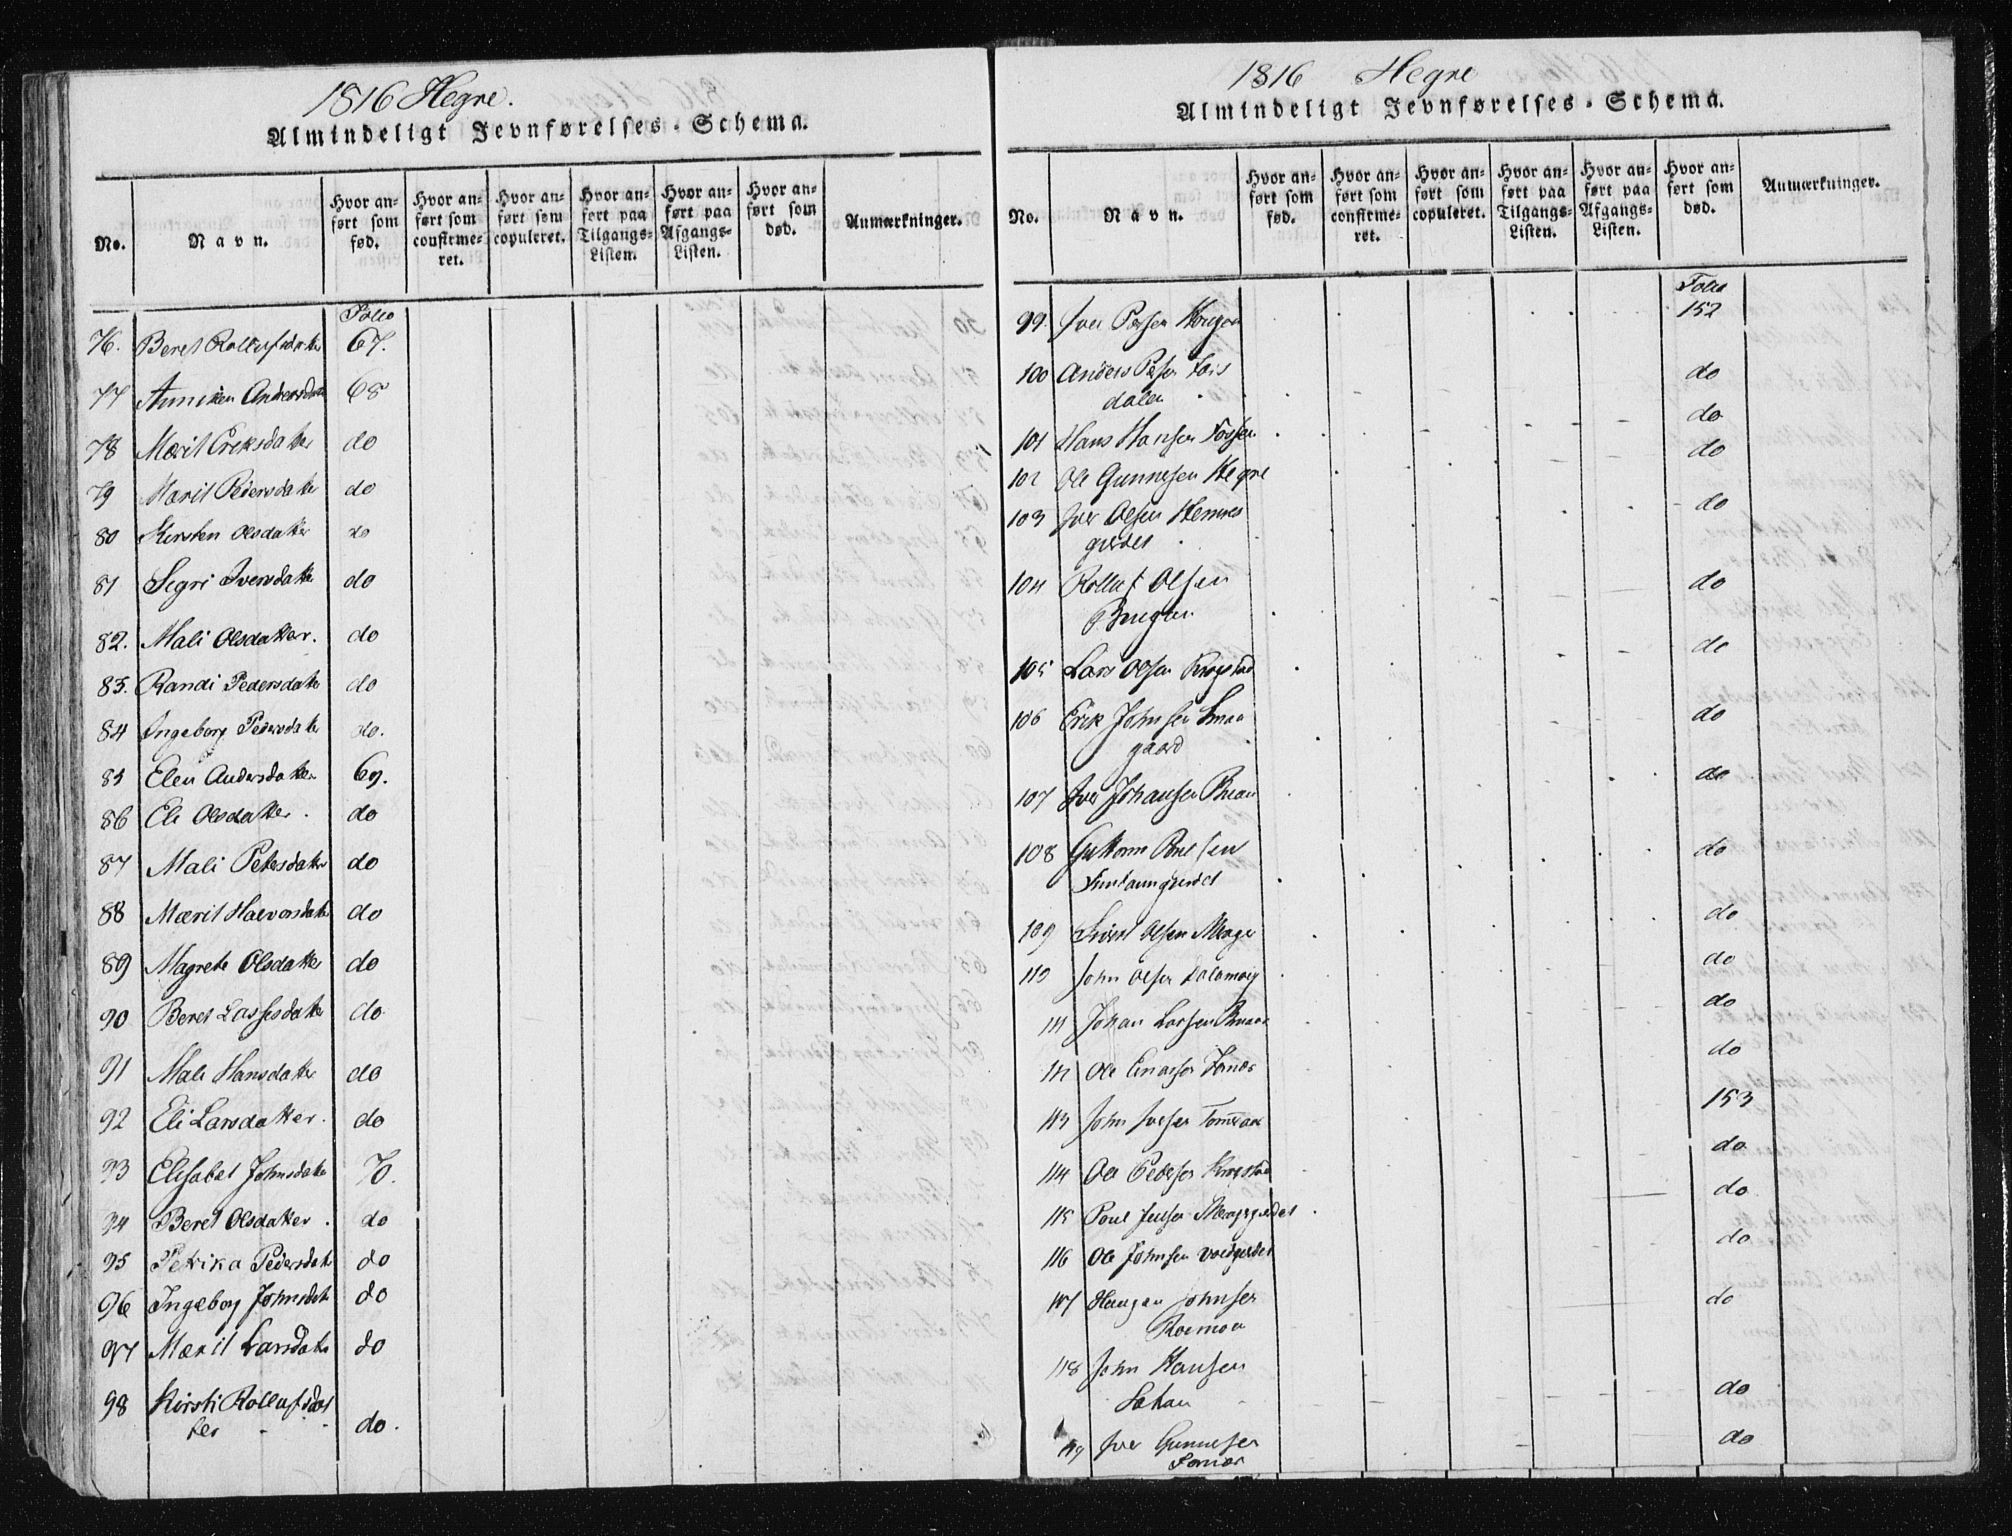 1816 Hegre.
Almindeligt Jevnførelses-Schema.
No.
Navn.
Hvor anført som fød.
Hvor anført som confirmeret.
Hvor anført som copuleret.
Hvor anført paa Tilgangs-Listen.
Hvor anført paa Afgangs-Listen.
Hvor anført som død.
Anmærkninger.
Folio
76. Beret Rollufsdatter 67.
77 Anniken Andersdatter 68
78 Marit Eriksdatter do
79 Marit Pedersdatter do
80 Kirsten Olsdatter do
81 Segri Iversdatter do
82. Mali Olsdatter. do
83. Randi Pedersdatter do
84 Ingeborg Pedersdatter do.
85 Elen Andersdatter 69.
86 Eli Olsdatter. do
87 Mali Petersdatter do
88 Mærit Halvorsdatter do
89 Magrete Olsdatter do
90 Beret Lassesdatter do
91 Mali Hansdatter do
92 Eli Larsdatter. do
93 Elisabet Johnsdatter 70.
94 Beret Olsdatter. do
95 Petrika Pedersdatter do
96 Ingeborg Johnsdat do
97 Mærit Larsdatter do
98 Kirsti Rollufsdat
ter do.
1816 Hegre
Almindeligt Jevnførelses-Schema.
No.
Navn.
Hvor anført som fød.
Hvor anført som confirmeret.
Hvor anført som copuleret.
Hvor anført paa Tilgangs-Listen.
Hvor anført paa Afgangs-Listen.
Hvor anført som død.
Anmærkninger.
Folio
99. Iver Persen Haugen 152
100 Anders Persen
dalen do
101 Hans Hansen Fossen do
102 Ole Gunnesen Hegre do
103 Iver Olsen
gierdet do
104 Rolluf Olsen
do
105 Lars Olsen do
106 Erik Johnsen
gaard do
107 Iver Johansen do
108 Guttorm
do
109 Sivert Olsen do
110 John Olsen do
111 Johan Larsen do
112 Ole do
113 John Iversen 153
114 Ole Pedersen do
115 Poul Jensen do
116 Ole Johnsen do
117 Haagen Johnsen
Roemoa do
118 John Hansen
do
119 Iver Gunnesen
do